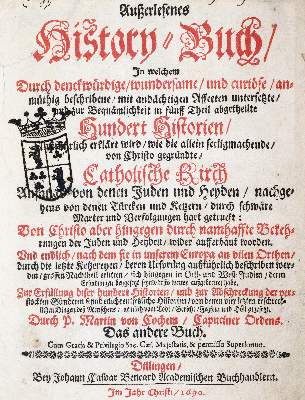 Außerlesenes
History-Buch/
In welchem
Durch denckwürdige/ wundersame/ und curiöse/ an-
müthig beschribene/ mit andächtigen Affecten untersetzte/
zur Bequämlichkeit in fünff Theil abgetheilte
Hundert Historien/
erklärt wird/ wie die allein seeligmachende/
von Christo gegründte/
Catholische Kirch
von denen Juden und Heyden/ nachge-
hens von denen Türcken und Ketzern/ durch schwäre
Marter und Verfolgungen hart getruckt:
Von Christo aber hingegen durch namhaffte Bekeh-
rungen der Juden und Heyden/ wider aufferbaut worden.
Und endlich/ nach dem sie in unserem Europa an vilen Orthen/
durch die letste Ketzereyen/ deren Ursprung außführlich beschriben wor-
den/ grossen Nachtheil erlitten/ sich hingegen in Ost- und West-Indien/
Zur Erfüllung diser hundert Historien/ und zur Abschreckung der ver-
stockten Sündern
Durch P. Martin von Cochem/ Capuciner Ordens.
Das andere Buch.
Cum Gratia & Privilegio Sac. Cæs. Majestatis, & permissu Superiorum.
Dillingen/
Bey Johann Caspar Bencard Academischen Buchhandlern.
Im Jahr Christi/ 1690.